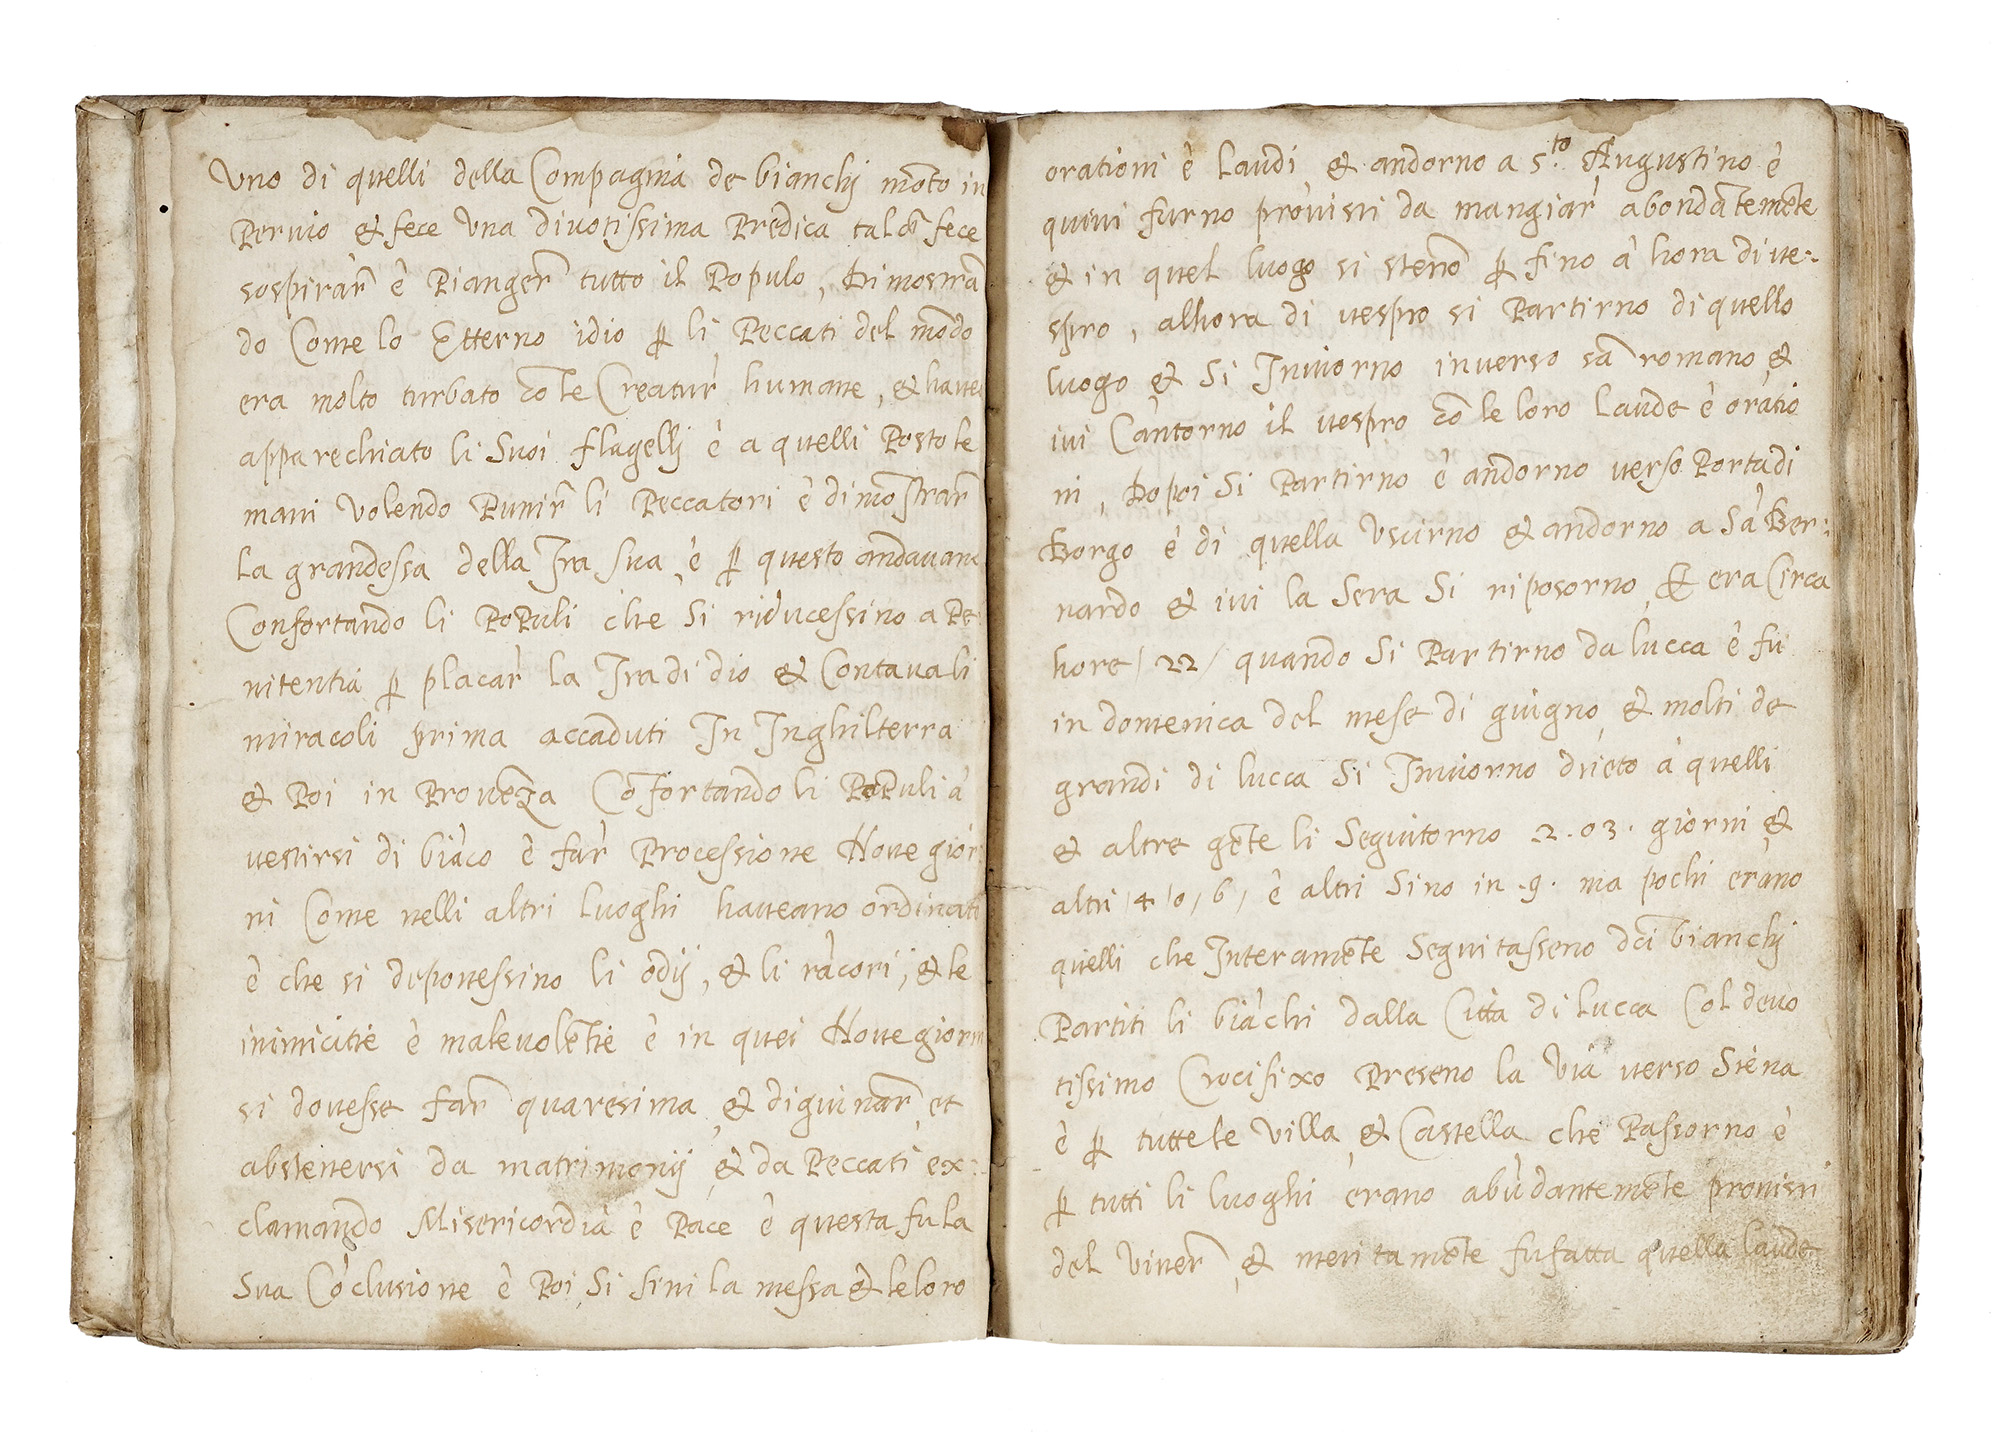 Uno di quelli della Compagnia de bianchj mõto in
Pervio & fece Una divotissima Predica tal ch̃ fece
sospirar̃ è Pianger̃ tutto il Populo, Dimostrã
do Come lo Etterno idio ꝑ li Peccati del mõdo
era molto turbato cõ le Creatur̃ humane, & havea
apparechiato li Suoi flagellj è a quelli Posto le
mani Volendo Punir̃ li Peccatori è dimostrar̃
La grandessa della Ira Sua, è ꝑ questo andavano
Confortando li PoPuli che Si riducessino a Pe
nitentia ꝑ placar̃ la Ira di dio & Contava li
miracoli prima accaduti In Inghilterra
& Poi in Provenza Cõfortando li PoPuli à
vestirsi di biãco è far̃ Processione Nove gior:
ni Come nelli altri luoghi haveano ordinati
è che si deponessino li odij, & li rãcori, & le
inimicitie è malevolẽtie è in quei Nove giorni
si dovesse far̃ quaresima, & diguinar̃, et
abstenersi da matrimonij, & da Peccati ex:
clamando Misericordia è Pace è questa fu la
Sua Cõclusione è Poi Si finì la messa & le loro
orationi è laudi & andorno a S.to Augustino è
quivi furno provisti da mangiar̃ abondãtemẽte
& in quel luogo si stenõ ꝑ fino à hora di ve:
spro, alhora di vespro si Partirno di quello
luogo & Si Inviorno inverso sã romano, &
ivi Cantorno il vespro cõ le loro laude è oratio
ni, Dopoi Si Partirno è andorno verso Porta di
Borgo è di quella Uscirno & andorno a Sã Ber:
nardo & ivi la Sera Si riposorno, & era Circa
hore / 22 / quando Si Partirno da lucca è fu
in domenica del mese di giugno, & molti de
grandi di lucca Si Inviorno drieto à quelli
& altre gẽte li Seguitorno 2. o 3. giorni &
altri / 4 / o / 6 / è altri Sino in .9. ma pochi erano
quelli che Interamẽte Seguitasseno dei bianchj
Partiti li biãchi dalla Citta di lucca Col devo
tissimo Crocifixo Preseno la Via verso Siena
è ꝑ tutte le Villa, & Castella che Passorno è
ꝑ tutti li luoghi erano abũdantemẽte provisti
del Viver̃, & meritamẽte fu fatta quella laude